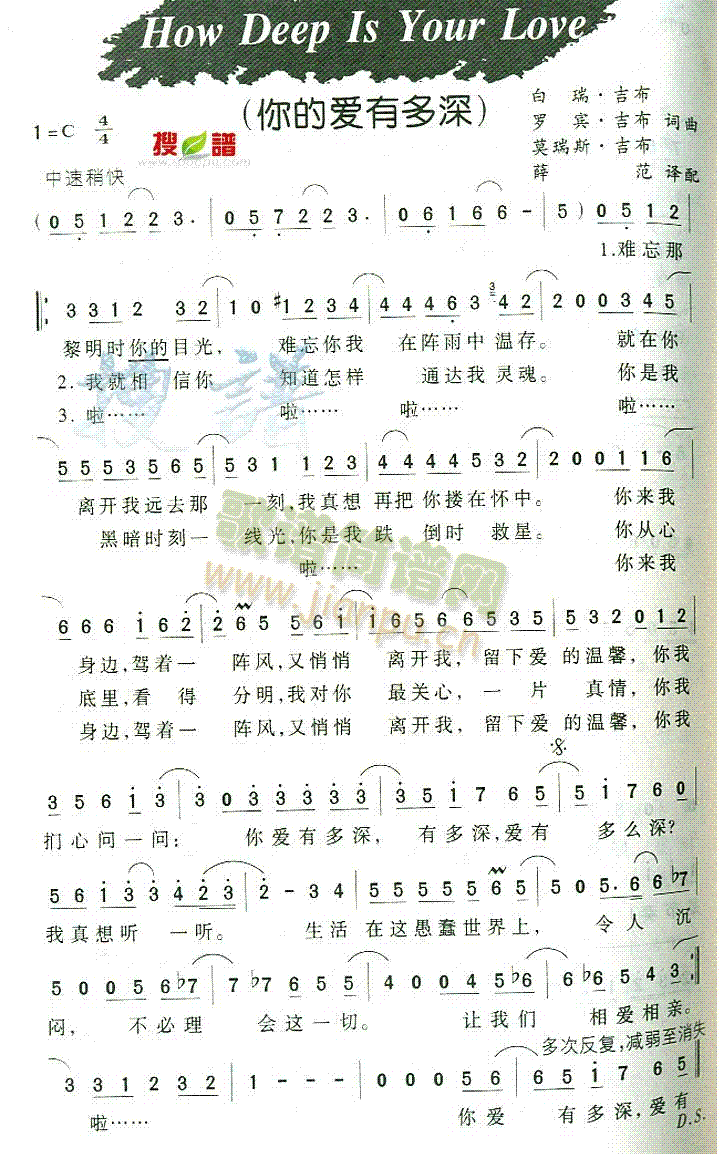 How Deep Is Your Love
(你的爱有多深)
白 瑞·吉布
1=C 4/4
罗 宾·吉布 词曲
莫瑞斯·吉布
搜 譜
中速稍快
薛 范 译配
(0 5 1 2 2 3. | 0 5 7 2 2 3. | 0 6 1 6 6 - | 5) 0 5 1 2
1.难忘那
3 3 1 2 3 2 | 1 0 #1 2 3 4 | 4 4 4 4 6 3 4 2 | 2 0 0 3 4 5
黎明时你的目光, 难忘你我 在阵雨中 温存。 就在你
2.我就相 信你 知道怎样 通达我 灵魂。 你是我
3.啦…… 啦…… 啦…… 啦……
5 5 5 3 5 6 5 | 5 3 1 1 2 3 | 4 4 4 4 4 5 3 2 | 2 0 0 1 1 6
离开我远去那 一刻,我真想 再把 你搂在怀中。 你来我
黑暗时刻一 线光,你是我 跌 倒时 救星。 你从心
啦…… 你来我
歌谱简谱网
www.jianpu.cn
6 6 6 1 6 2 | 2 6 5 5 6 1 | 1 6 5 6 6 5 3 5 | 5 3 2 0 1 2
身边,驾着一 阵风,又悄悄 离开我, 留下爱 的温馨, 你我
底里,看 得 分明,我对你 最关心, 一 片 真情, 你我
身边,驾着一 阵风,又悄悄 离开我, 留下爱 的温馨, 你我
3 5 6 1 3 | 3 0 3 3 3 3 3 | 3 5 1 7 6 5 | 5 1 7 6 0
扪心问一问: 你爱有多深, 有多深,爱有 多么深?
5 6 1 3 3 4 2 3 | 2 - 3 4 | 5 5 5 5 5 5 6 5 | 5 0 5. 6 6 b7
我真想听 一听。 生活 在这愚蠢世界上, 令人 沉
5 0 0 5 6 b7 | 7 b7 6 5 5 | 4 0 0 4 5 b6 | b6 6 5 4 3 :
闷, 不必理 会这一切。 让我们 相爱相亲。
多次反复,减弱至消失
3 3 1 2 3 2 | 1 - - - | 0 0 0 5 6 | 6 5 1 7 6 5
啦…… 你爱 有多深,爱有
D.S.